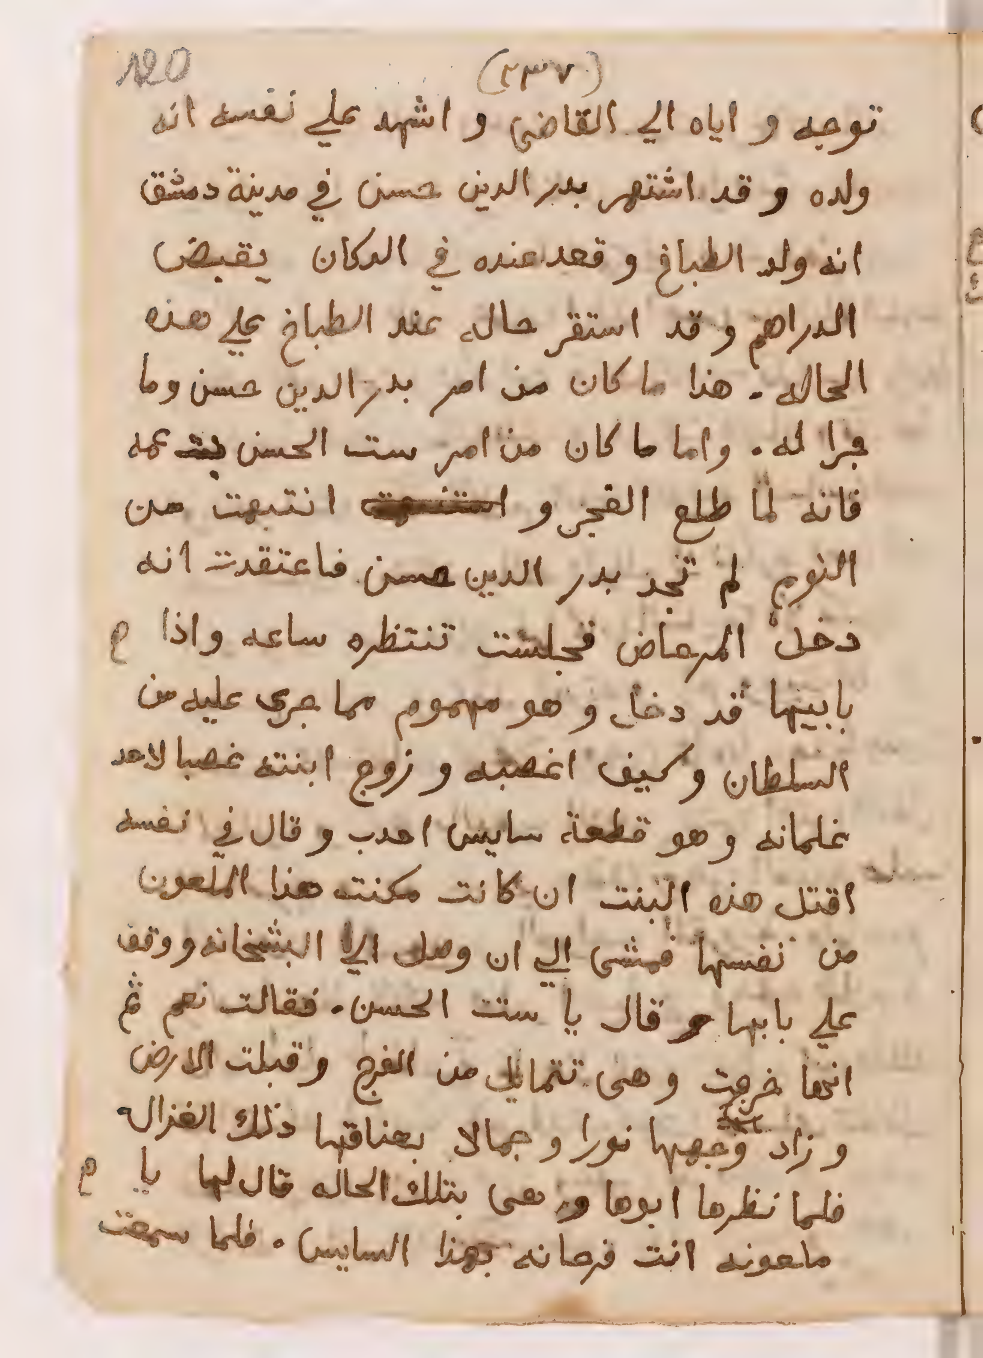 120
(٢٣٧)
توجه و اياه الي القاضي و اشهد علي نفسه انه
ولده و قد اشتهر بدر الدين حسن في مدينة دمشق
انه ولد الطباخ و قعد عنده في الدكان يقبض
الدراهم و قد استقر حاله عند الطباخ علي هذه
الحاله . هذا ما كان من امر بدر الدين حسن وما
جرا له . واما ما كان من امر ست الحسن بنت عمه
فانه لما طلع الفجر و انتبهت من
النوم لم تجد بدر الدين حسن فاعتقدت انه
دخل المرحاض فجلست تنتظره ساعه واذا م
بابيها قد دخل و هو مهموم مما جري عليه من
السلطان و كيف اغصبه و زوج ابنته غصبا لاحد
غلمانه و هو قطعة سايس احدب و قال في نفسه
اقتل هذه البنت ان كانت مكنت هذا الملعون
من نفسها فمشى الي ان وصل الي البشخانه و وقف
علي بابها و قال يا ست الحسن . فقالت نعم ثم
انها خرجت و هى تتمايل من الفرح و قبلت الارض
و زاد وجهها نورا و جمالا بعناقها ذلك الغزال
فلما نظرها ابوها و هى بتلك الحاله قال لها يا م
ملعونه انت فرحانه بهذا السايس . فلما سمعت